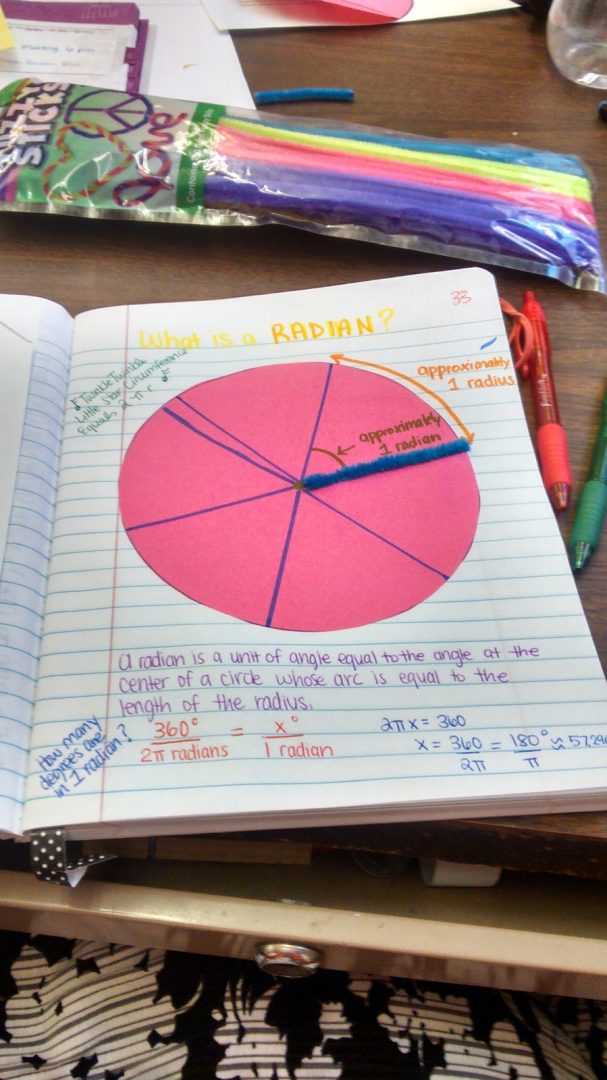 Meeting 6 pm
FUZZY
STICKS
love
33
What is a RADIAN?
Twinkle Twinkle
Little Star Circumference
Equals 2 π r
approximately
1 radius
approximately
1 radian
A radian is a unit of angle equal to the angle at the
center of a circle whose arc is equal to the
length of the radius.
How many
degrees are
in 1 radian?
360° = x°
2π radians 1 radian
2πx = 360
x = 360 = 180° ≈ 57.296
2π π